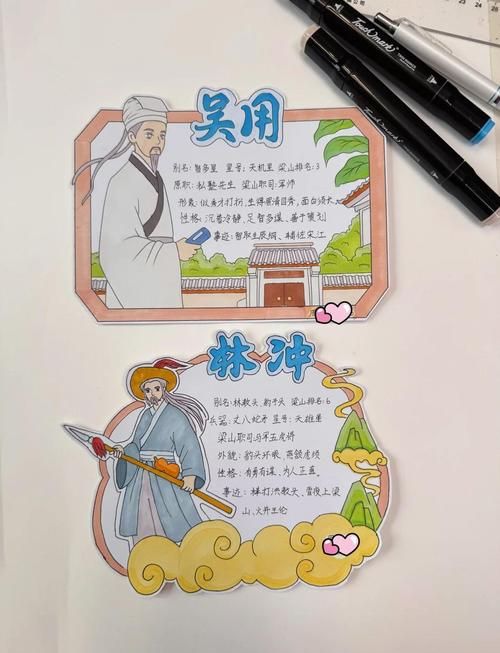 吴用
别名:智多星 星号:天机星 梁山排名:3
原职:私塾先生 梁山职司:军师
形象:似秀才打扮,生得眉清目秀,面白须长
性格:沉着冷静、足智多谋、善于策划
事迹:智取生辰纲、辅佐宋江
林冲
别名:林教头、豹子头 梁山排名:6
兵器:丈八蛇矛 星号:天雄星
梁山职司马军五虎将
外貌:豹头环眼、燕颔虎须
性格:有勇有谋、为人正直。
事迹:棒打洪教头、雪夜上梁
山、火并王伦
Touchmark
Touchmark